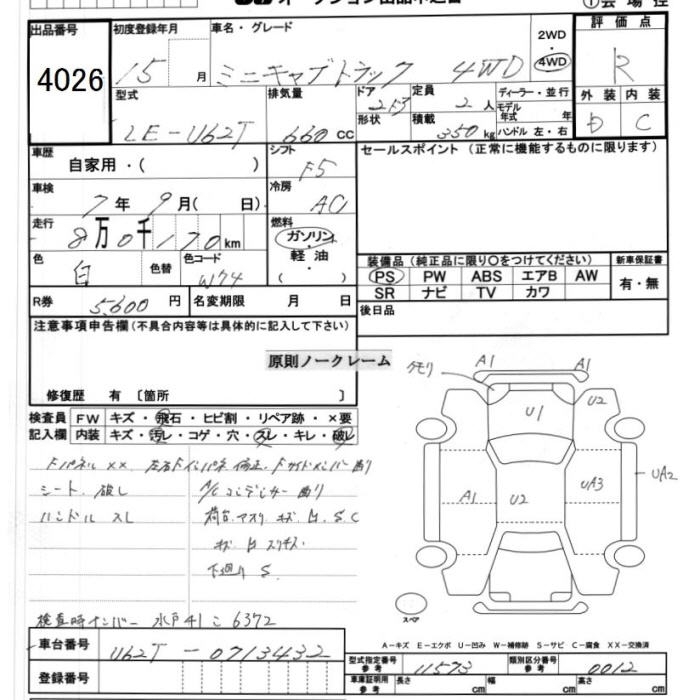 出品番号
4026
初度登録年月
15 月
車名・グレード
ミニキャブトラック 4WD
2WD
4WD
評価点
R
型式
LE-U62T
排気量
660 cc
ドア
形状
2ドア
定員
2 人
積載
350 kg
ディーラー・並行
モデル
年式 年
ハンドル 左・右
外装 内装
D C
車歴
自家用・( )
シフト
F5
セールスポイント (正常に機能するものに限ります)
車検
7 年 9 月( 日)
冷房
AC
走行
8 万 0 千 170 km
燃料
ガソリン
軽油
( )
色
白
色替
色コード
W74
装備品 (純正品に限り○をつけてください) 新車保証書
PS PW ABS エアB AW
SR ナビ TV カワ
有・無
R券 5,600 円
名変期限 月 日
後日品
注意事項申告欄(不具合内容等は具体的に記入して下さい)
原則ノークレーム
修復歴 有 〔箇所 〕
検査員
記入欄
FW キズ・飛石・ヒビ割・リペア跡・×要
内装 キズ・汚レ・コゲ・穴・スレ・キレ・破レ
Fパネル ×× 左右Fインパネ 修正、Fサイドメンバー曲り
シート 破レ
A/C コンデンサー 曲り
ハンドル スレ
荷台、マスク キズ 凹 S、C
下廻り S
検査時ナンバー 水戸41 こ 6372
クモリ
A1 A1
U1
U2
A1
U2
UA3
UA2
スペア
車台番号
U62T-0713432
登録番号
A-キズ E-エクボ U-凹み W-補修跡 S-サビ C-腐食 XX-交換済
型式指定番号
参考
11573
類別区分番号
参考
0012
車庫証明用
参考
長さ cm 幅 cm 高さ cm